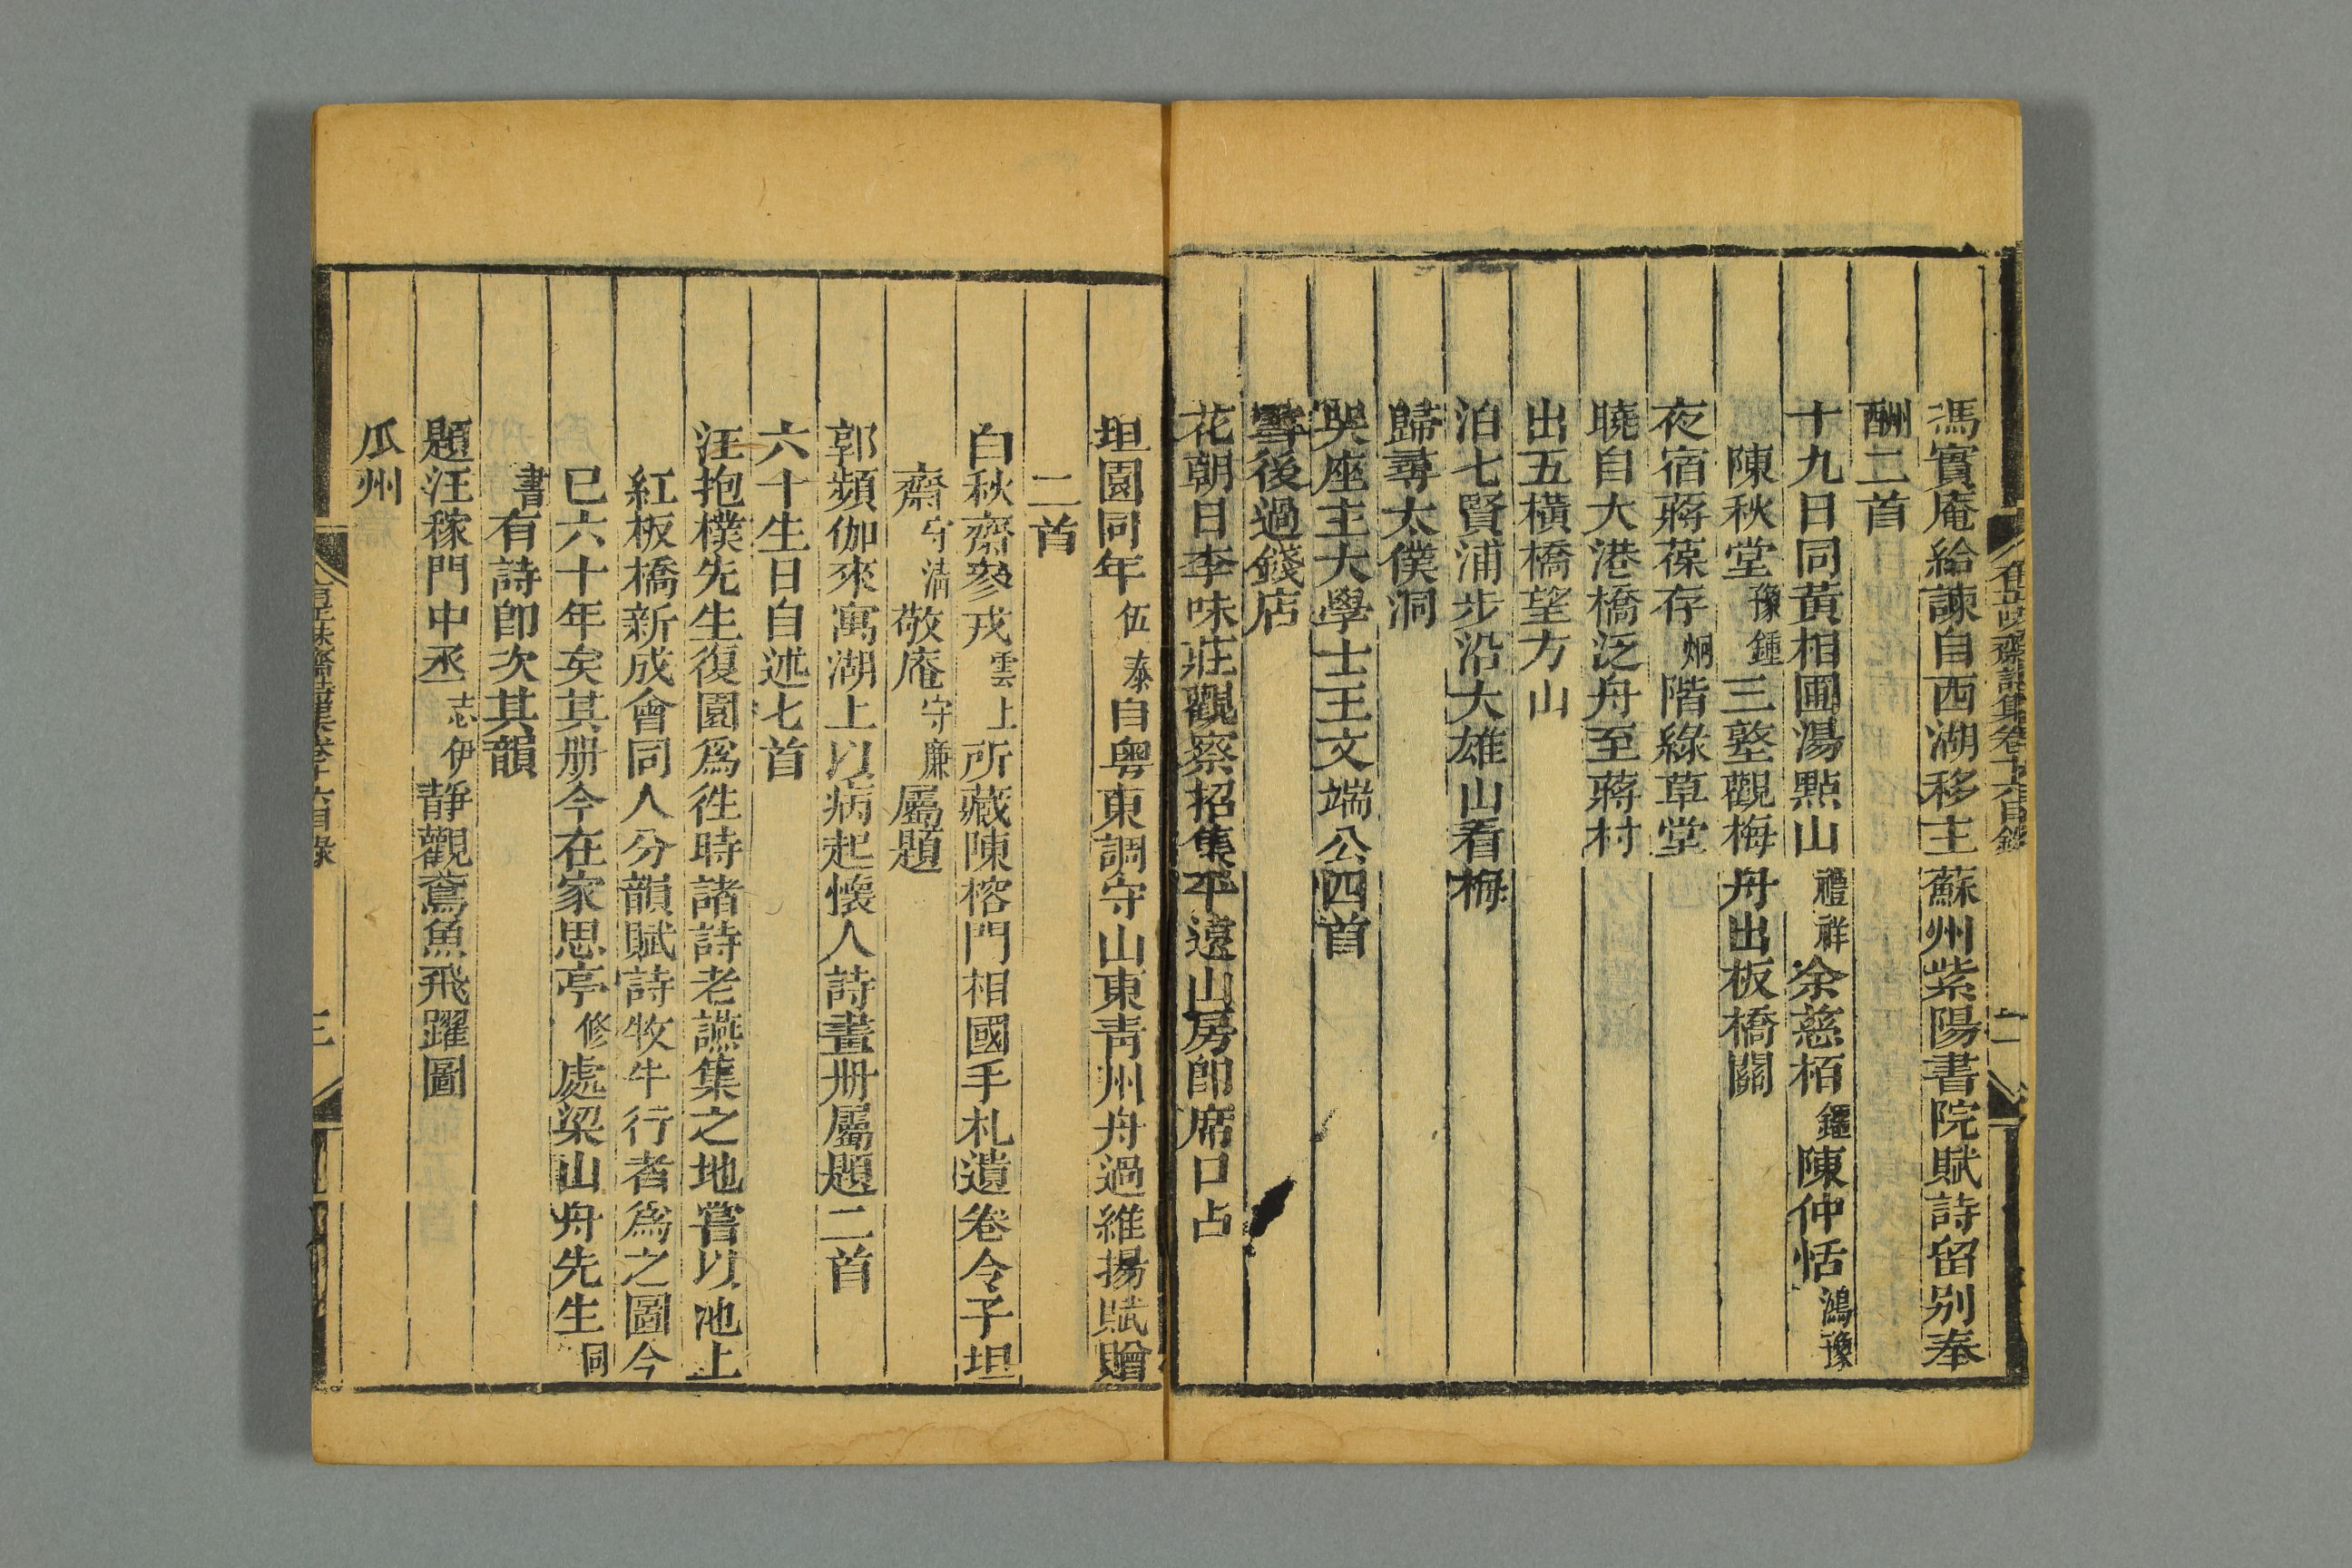 馮實庵給諫自西湖移主蘇州紫陽書院賦詩留别奉
酬二首
十九日同黃相圃湯點山禮祥余慈栢鑼陳仲恬鴻豫
陳秋堂豫鍾三墪觀梅舟出板橋關
夜宿蔣葆存炯階綠草堂
曉自大港橋泛舟至蔣村
出五橫橋望方山
泊七賢浦步沿大雄山看梅
歸尋太僕洞
哭座主大學士王文端公四首
雪後過錢店
花朝日李味莊觀察招集平遠山房卽席口占
坦園同年伍泰自粵東調守山東靑州舟過維揚賦贈
二首
白秋齋參戎雲上所藏陳榕門相國手札遺卷令子坦
齋守淸敬庵守廉屬題
郭頻伽來寓湖上以病起懷人詩畫册屬題二首
六十生日自述七首
汪抱樸先生復園爲徃時諸詩老讌集之地嘗以池上
紅板橋新成會同人分韻賦詩牧牛行者爲之圖今
已六十年矣其册今在家思亭修處梁山舟先生同
書有詩卽次其韻
題汪稼門中丞志伊靜觀鳶魚飛躍圖
瓜州
有正味齋詩集卷十六目錄
三